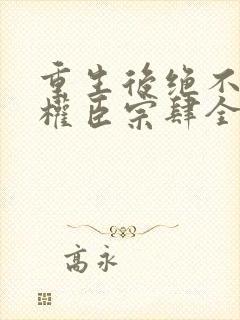 重生後绝不
權臣宗肆全
高永